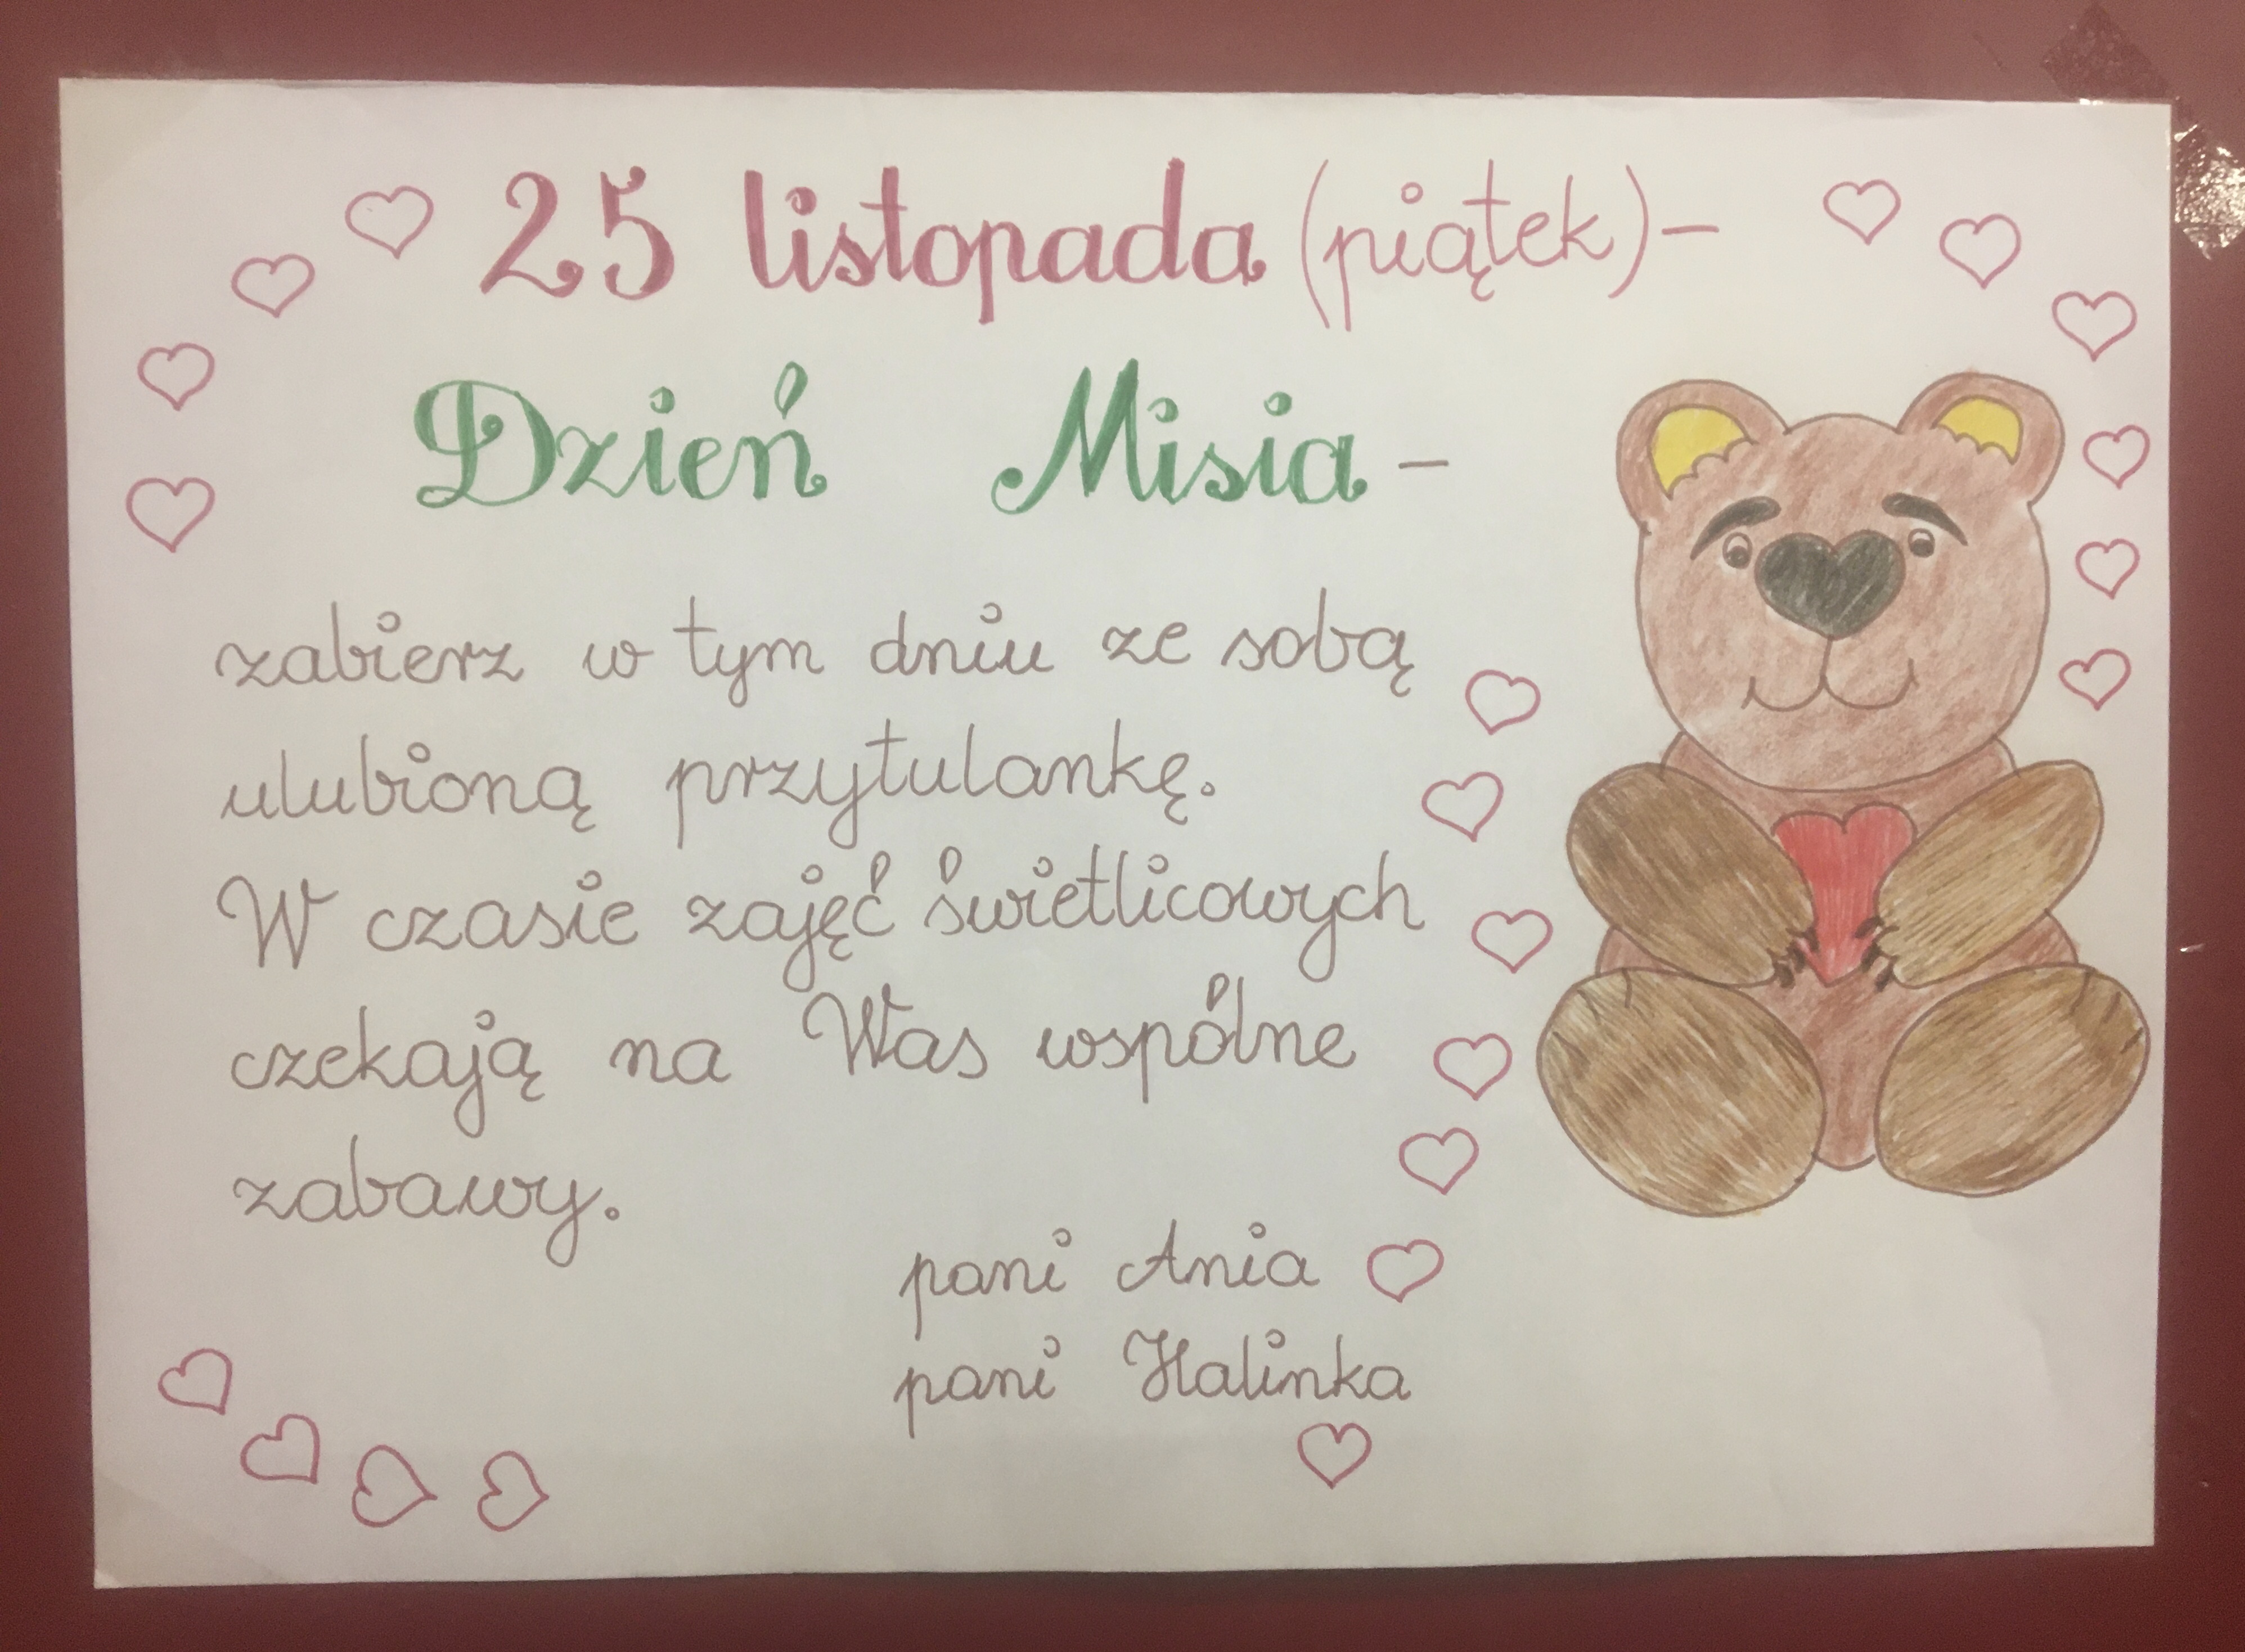 25 listopada (piątek) –
Dzień Misia –
zabierz w tym dniu ze sobą
ulubioną przytulankę.
W czasie zajęć świetlicowych
czekają na Was wspólne
zabawy.
pani Ania
pani Halinka